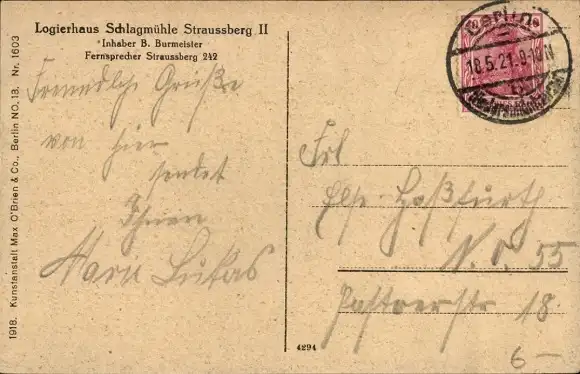 Logierhaus Schlagmühle Straussberg II
Inhaber B. Burmeister
Fernsprecher Straussberg 242
Freundlche Grüße
von hier
sendet
Ihnen
Lukas
1918. Kunstanstalt Max O'Brien & Co., Berlin NO. 18. Nr. 1603
Berlin
18.5.21.9-10N
Frl
Else Haßfurth
N.O. 55
Pastorerstr 18.
4294
6-